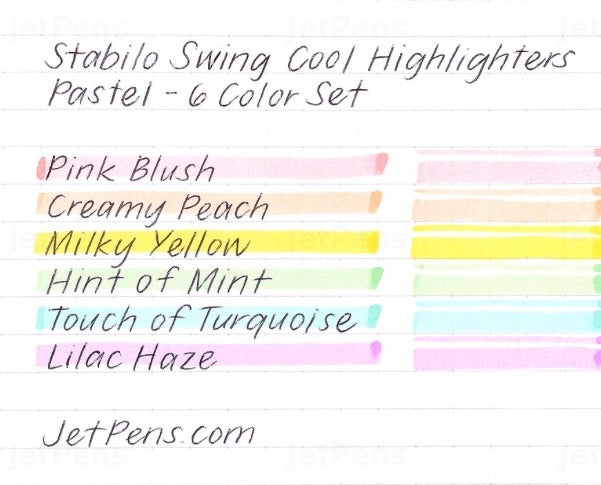 Stabilo Swing Cool Highlighters
Pastel - 6 Color Set
Pink Blush
Creamy Peach
Milky Yellow
Hint of Mint
Touch of Turquoise
Lilac Haze
JetPens.com
JetPens
JetPens
JetPens
JetPens